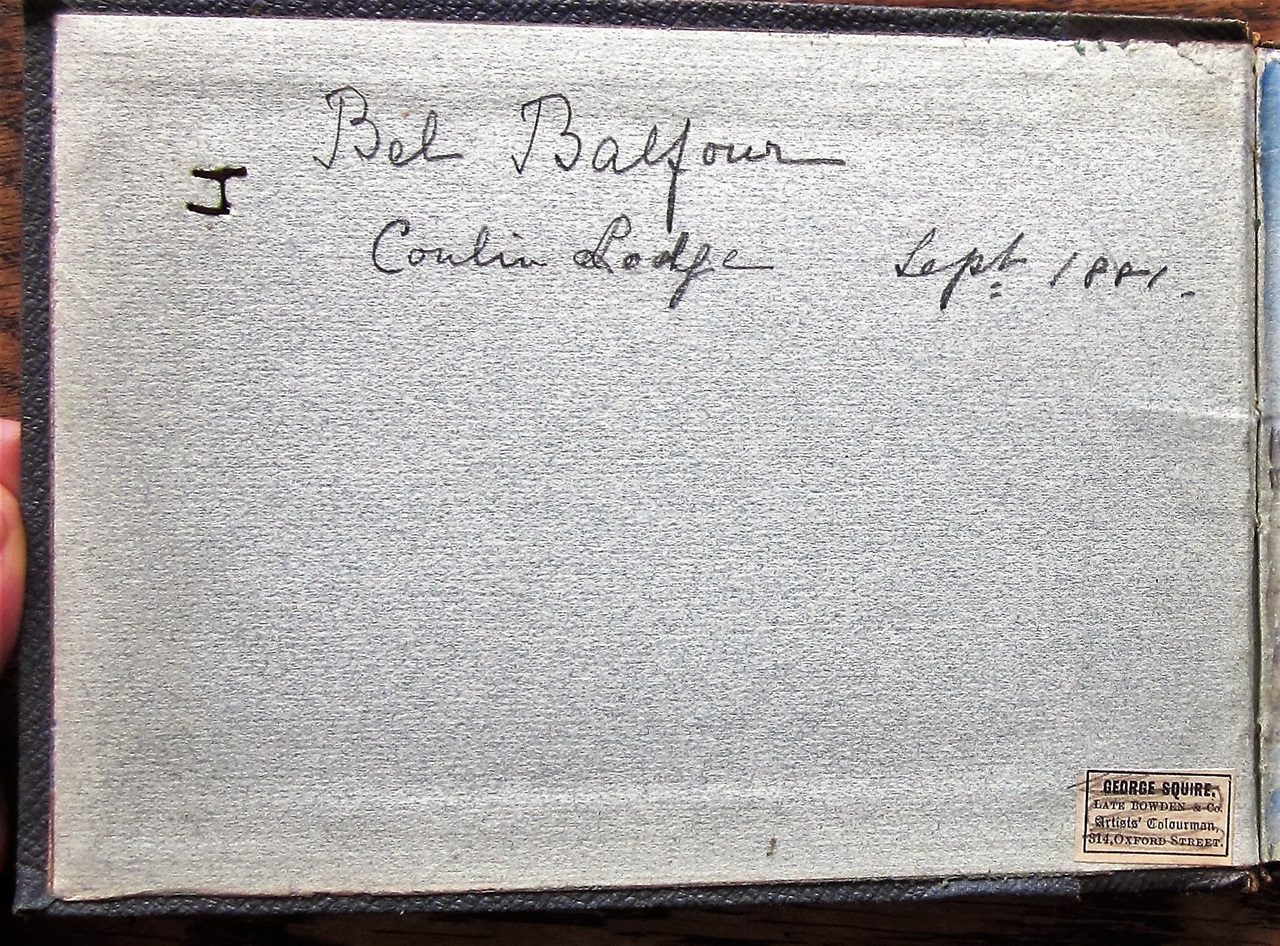 Bel Balfour
I
Coulin Lodge Sept 1881.
GEORGE SQUIRE,
LATE BOWDEN & Co.
Artists' Colourman,
314, OXFORD STREET.